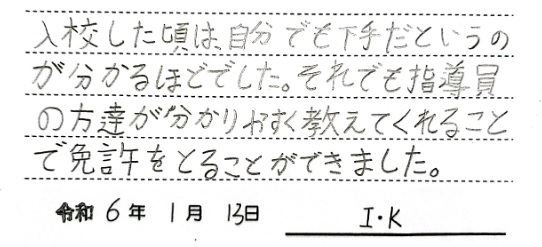 入校した頃は、自分でも下手だというの
が分かるほどでした。それでも指導員
の方達が分かりやすく教えてくれること
で免許をとることができました。
令和 6年 1月 13日 I・K